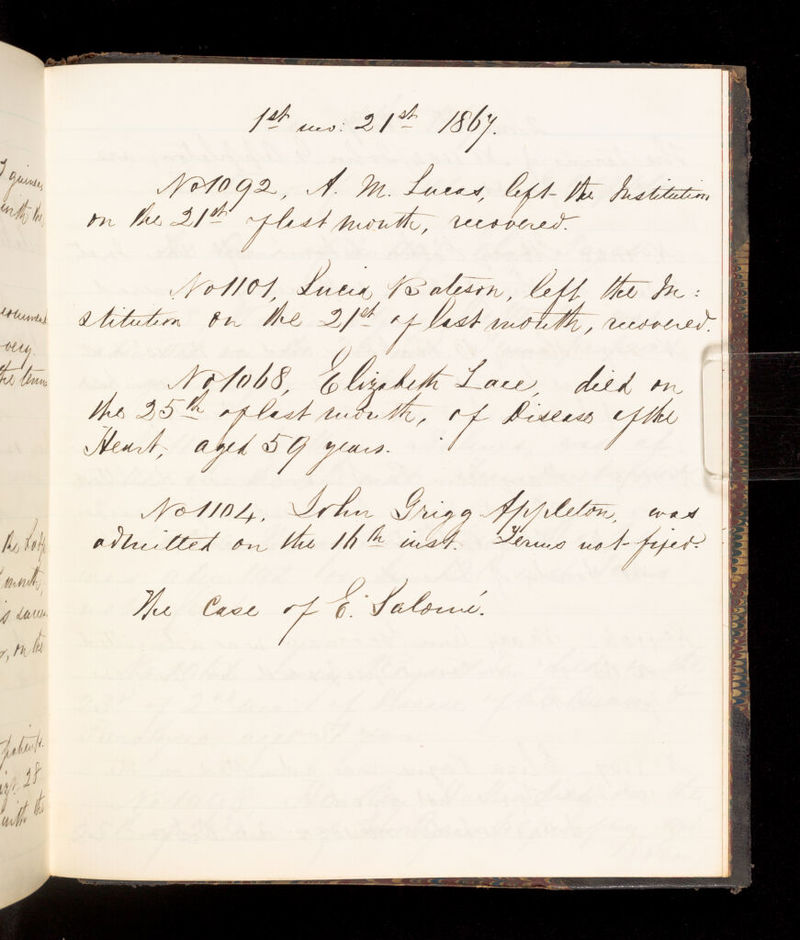 1st mo: 21st 1867.
No 1092, A. M. Lucas, left the Institution
on the 21st of last month, recovered.
No 1101, Lucia Bateson, left the In:
stitution on the 21st of last month, recovered.
No 1068, Elizabeth Lace, died on
the 25th of last month, of Disease of the
Heart, aged 59 years.
No 1104, John Grigg Appleton, was
admitted on the 16th inst. Terms not fixed.
The Case of E. Salomé.